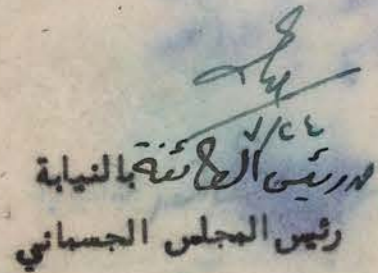 ٧/٢٤
رئيس الطائفة بالنيابة
رئيس المجلس الجسماني